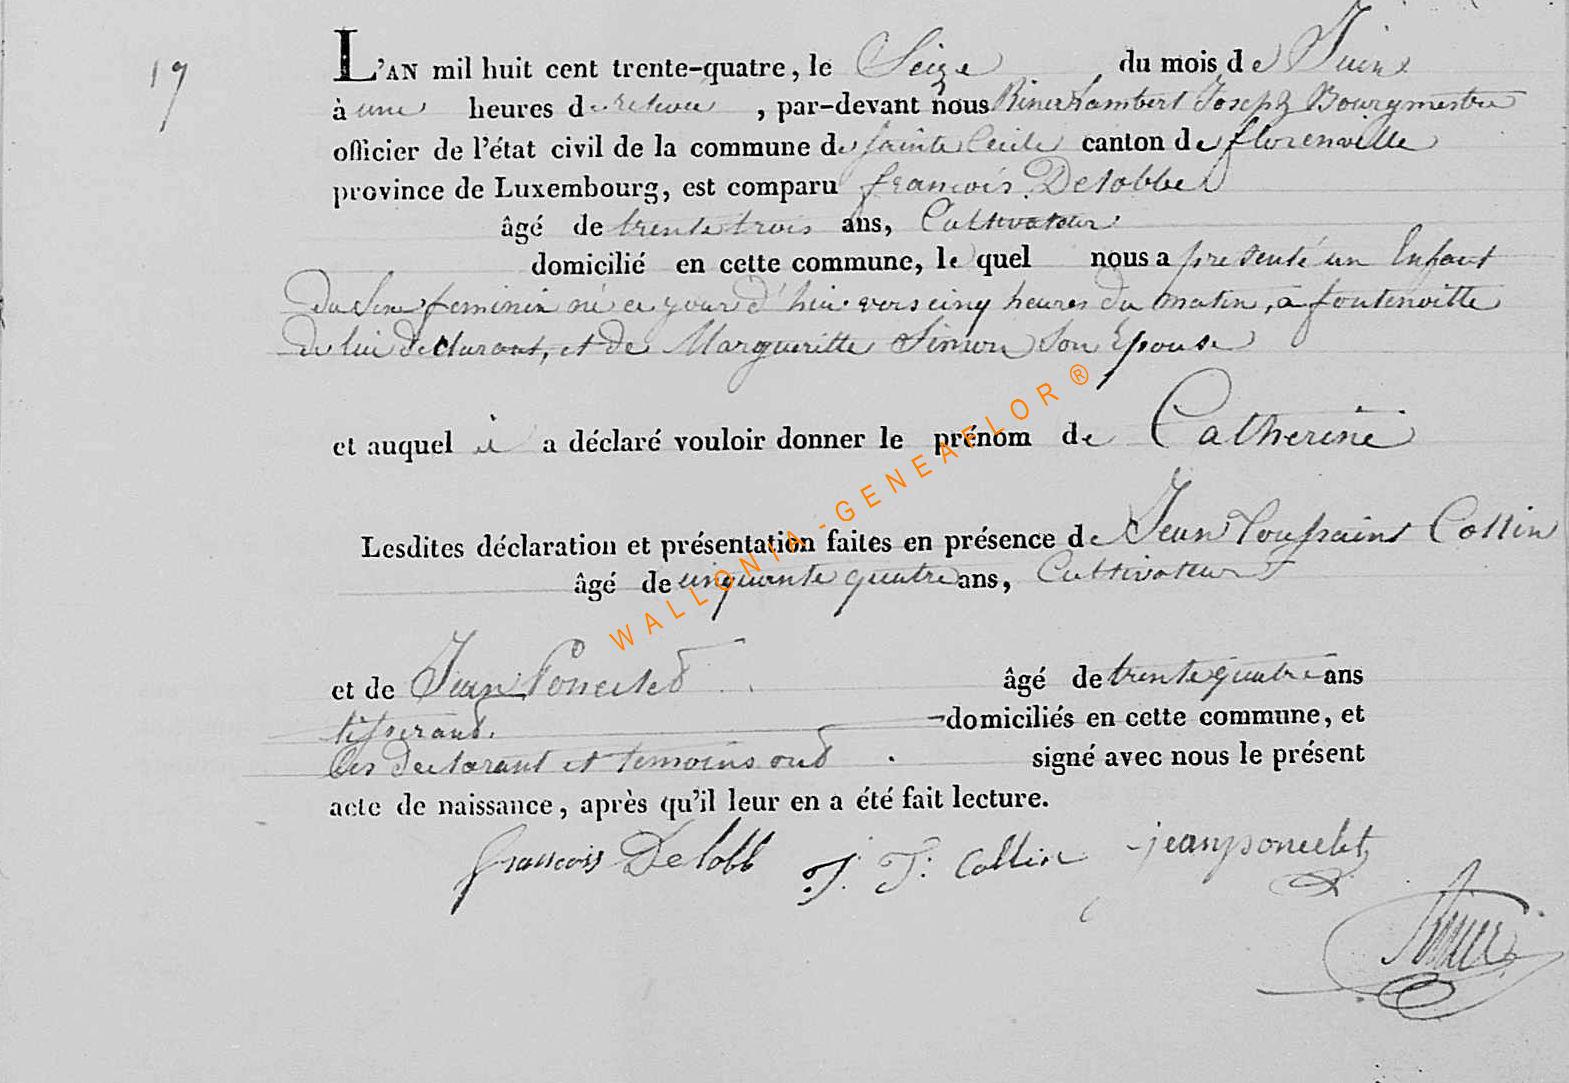 19
L'AN mil huit cent trente-quatre, le Seize du mois de Juin
à une heures de relevée, par-devant nous Riner Lambert Joseph Bourgmestre
officier de l'état civil de la commune de Sainte Cecile canton de florenville
province de Luxembourg, est comparu françois Delobbe
âgé de trente trois ans, Cultivateur
domicilié en cette commune, le quel nous a presenté un Enfant
du Sexe feminin né ce jour d'hui vers cinq heures du matin, a fontenoille
de lui declarant, et de Margueritte Simon Son Epouse
et auquel il a déclaré vouloir donner le prénom de Catherine
Lesdites déclaration et présentation faites en présence de Jean Toussaint Collin
âgé de cinquante quatre ans, Cultivateur
et de Jean Poncelet âgé de trente quatre ans
tisserand. domiciliés en cette commune, et
les declarant et temoins ont signé avec nous le présent
acte de naissance, après qu'il leur en a été fait lecture.
francois Delobb J. T. Collin jean poncelet
WALLONIA-GENEAFLOR®